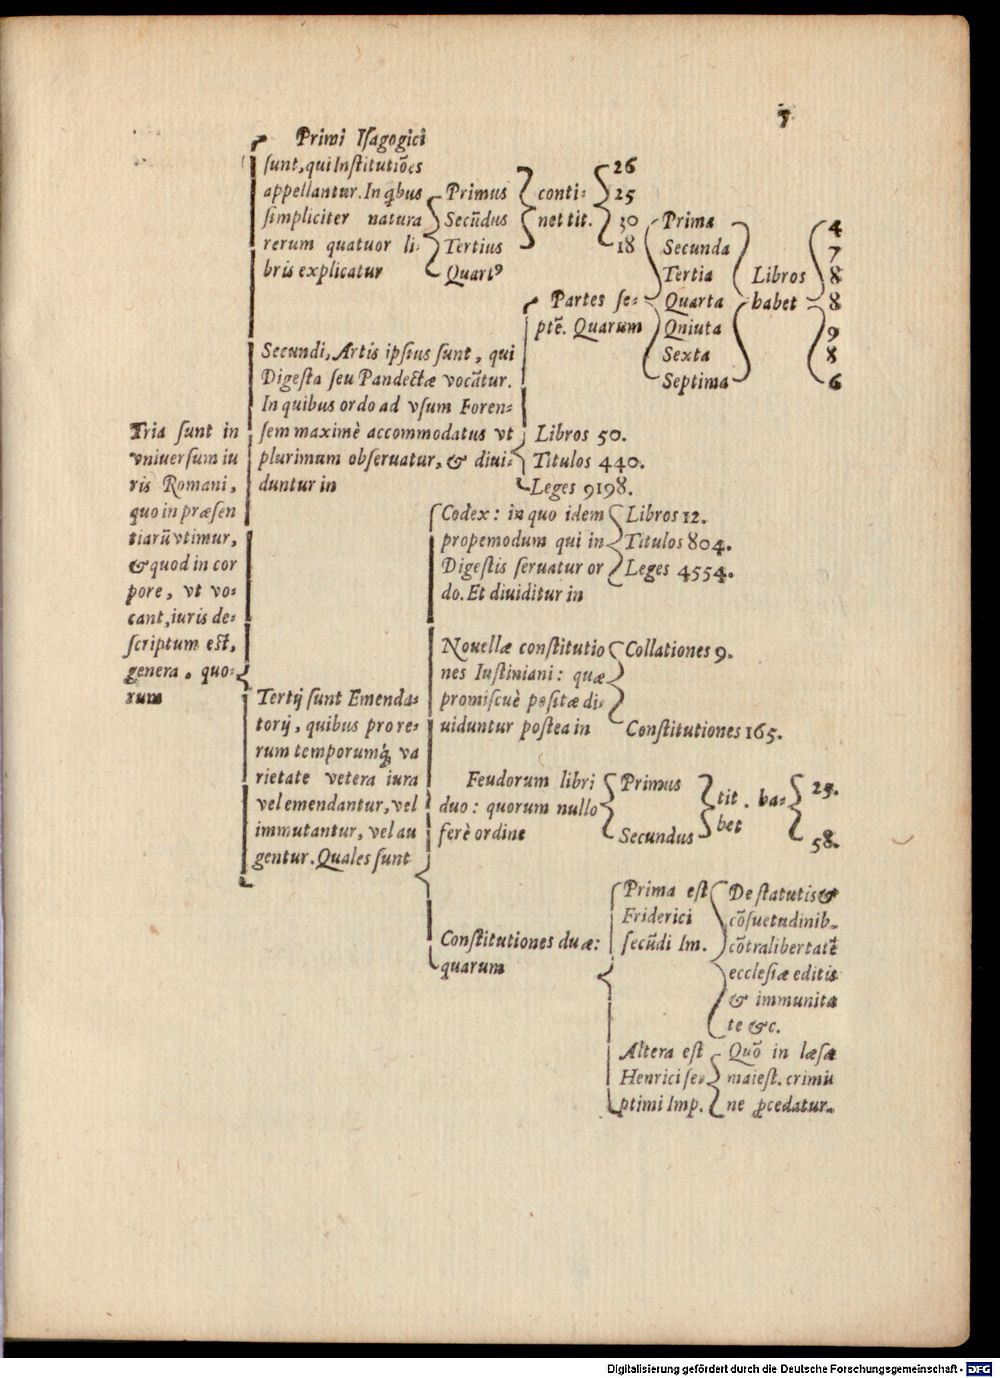 5
Tria sunt in
vniuersum iu
ris Romani,
quo in præsen
tiarũ vtimur,
& quod in cor
pore, vt vo-
cant, iuris de-
scriptum est,
genera, quo-
rum
Primi Isagogici
sunt, qui Institutiões
appellantur. In qͥbus
simpliciter natura
rerum quatuor li-
bris explicatur
Primus
Secũdus
Tertius
Quartꝰ
conti-
net tit.
26
25
30
18
Secundi, Artis ipsius sunt, qui
Digesta seu Pandectæ vocãtur.
In quibus ordo ad vsum Foren-
sem maximè accommodatus vt
plurimum obseruatur, & diui-
duntur in
Partes se-
ptẽ. Quarum
Prima
Secunda
Tertia
Quarta
Qniuta
Sexta
Septima
Libros
habet
4
7
8
8
9
8
6
Libros 50.
Titulos 440.
Leges 9198.
Tertij sunt Emenda-
torij, quibus pro re-
rum temporumq́; va
rietate vetera iura
vel emendantur, vel
immutantur, vel au
gentur. Quales sunt
Codex: in quo idem
propemodum qui in
Digestis seruatur or
do. Et diuiditur in
Libros 12.
Titulos 804.
Leges 4554.
Nouellæ constitutio
nes Iustiniani: quæ
promiscuè positæ di-
uiduntur postea in
Collationes 9.
Constitutiones 165.
Feudorum libri
duo: quorum nullo
ferè ordine
Primus
Secundus
tit. ha-
bet
25.
58.
Constitutiones duæ:
quarum
Prima est
Friderici
secũdi Im.
De statutis &
cõsuetudinib.
cõtra libertatẽ
ecclesiæ editis
& immunita
te &c.
Altera est
Henrici se-
ptimi Imp.
Quõ in læsæ
maiest. crimi
ne ꝓcedatur.
Digitalisierung gefördert durch die Deutsche Forschungsgemeinschaft - DFG